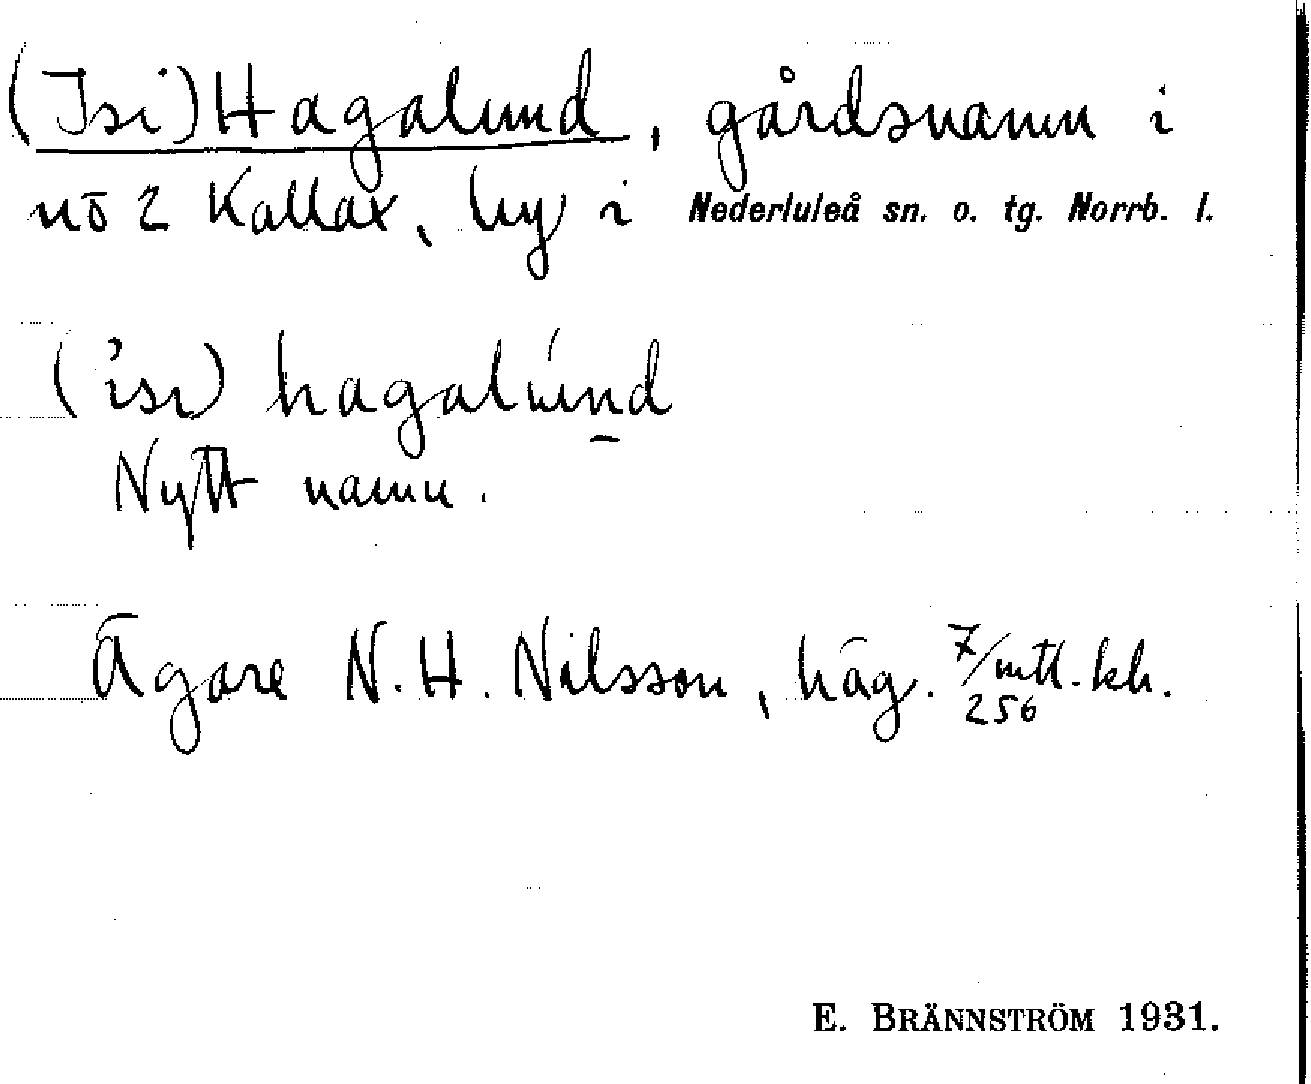 (Isi) Hagalund, gårdsnamn i
nō 2 Kallax, by i Nederluleå sn. o. tg. Norrb. l.
(ı̓sı) hagalúnd
Nytt namn.
Ägare N. H. Nilsson, häg. 7/256 mtl. kh.
E. BRÄNNSTRÖM 1931.